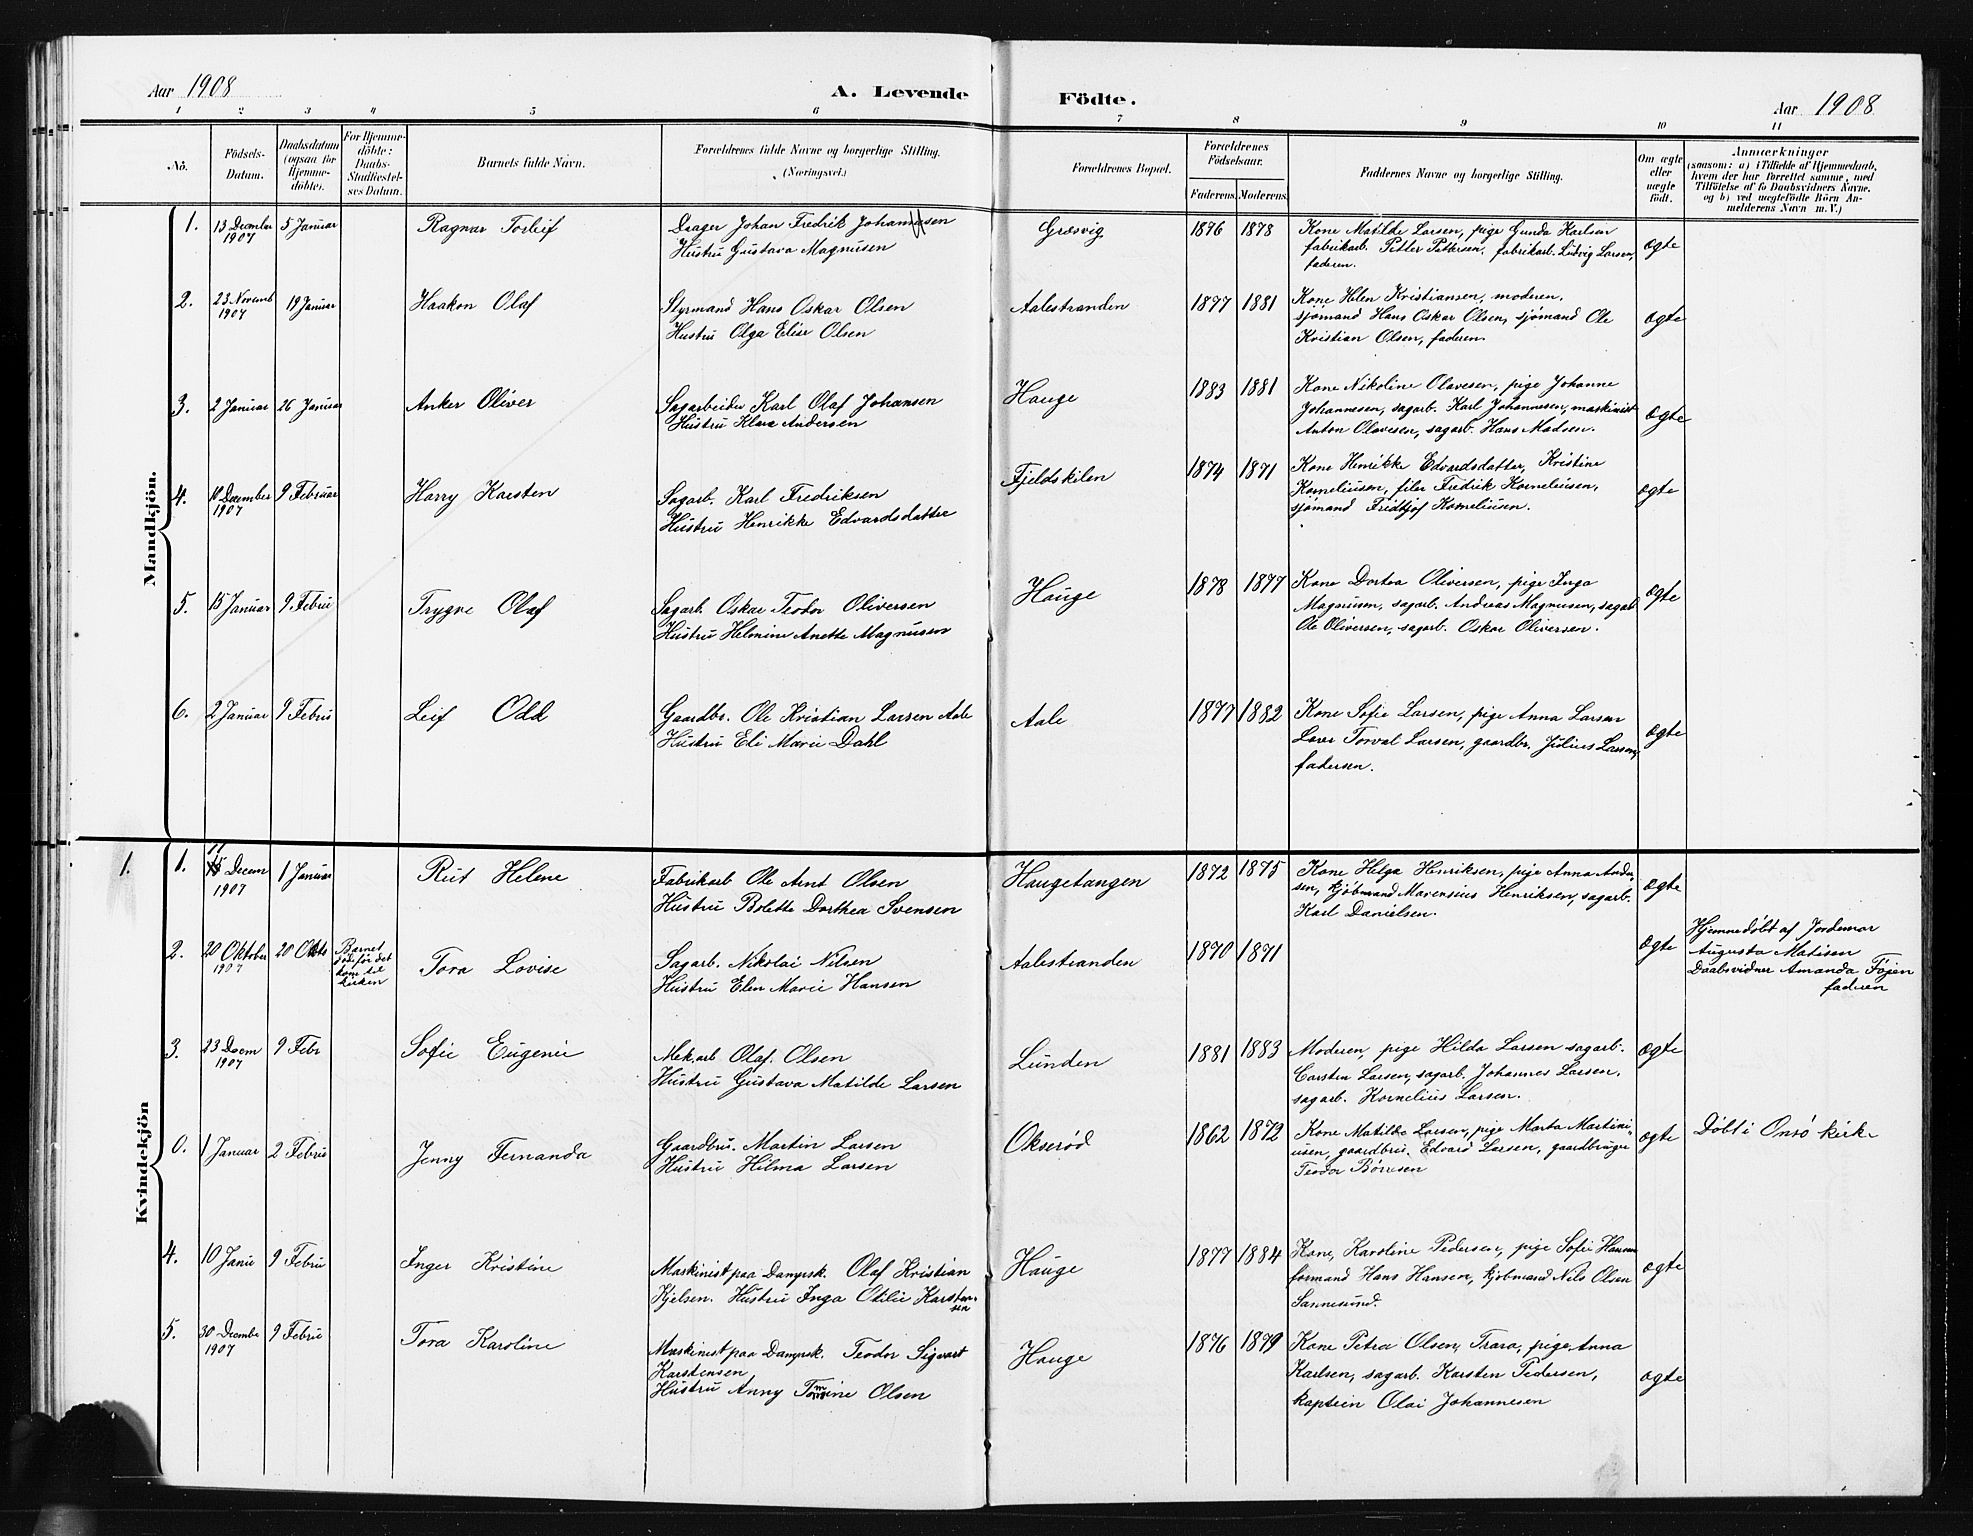 Aar 1908
A. Levende Födte.
Aar 1908
1 2 3 4 5 6 7 8 9 10 11
No.
Födsels-Datum.
Daabsdatum (ogsaa for Hjemme-döbte).
For Hjemme-döbte: Daabs-Stadfestel-ses Datum.
Barnets fulde Navn.
Forældrenes fulde Navne og borgerlige Stilling.
(Næringsvei.)
Forældrenes Bopæl.
Forældrenes Födselsaar.
Faderens. Moderens.
Faddernes Navne og borgerlige Stilling.
Om ægte eller uægte födt.
Anmærkninger
(saasom: a) i Tilfælde af Hjemmedaab,
hvem der har forrettet samme, med
Tilföielse af to Daabsvidners Navne,
og b) ved uægtefödte Börn An-
melderens Navn m. V.)
Mandkjön.
1. 13 December 1907 5 Januar Ragnar Torleif
Drager Johan Fredrik Johannesen
Hustru Gustava Magnusen
Græsvig 1876 1878
Kone Matilde Larsen, pige Gunda Karlsen
fabrikarb. Petter Pettersen, fabrikarb. Ludvig Larsen,
faderen.
ægte
2. 23 Novemb 1907 19 Januar Haakon Olaf
Styrmand Hans Oskar Olsen
Hustru Olga Elise Olsen
Aalestranden 1877 1881
Kone Helen Kristiansen, moderen,
sjömand Hans Oskar Olsen, sjömand Ole
Kristian Olsen, faderen.
ægte
3. 2 Januar 26 Januar Anker Oliver
Sagarbeider Karl Olaf Johansen
Hustru Klara Andersen
Hauge 1883 1881
Kone Nikoline Olavesen, pige Johanne
Johannesen, sagarb. Karl Johannesen, maskinist
Anton Olavesen, sagarb. Hans Madsen.
ægte
4. 10 December 1907 9 Februar Harry Karsten
Sagarb. Karl Fredriksen
Hustru Henrikke Edvardsdatter
Fjeldskilen 1874 1871
Kone Henrikke Edvardsdatter, Kristine
Korneliusen, filer Fredrik Korneliusen,
sjömand Fridtjof Korneliusen.
ægte
5. 15 Januar 9. Febru Trygve Olaf
Sagarb. Oskar Teodor Oliversen
Hustru Helmine Anette Magnusen
Hauge 1878 1877
Kone Dortea Oliversen, pige Inga
Magnusen, sagarb. Andreas Magnusen, sagarb
Ole Oliversen, sagarb. Oskar Oliversen.
ægte
6. 2 Januar 9 Febru Leif Odd
Gaardbr. Ole Kristian Larsen Aale
Hustru Eli Marie Dahl
Aale 1877 1882
Kone Sofie Larsen, pige Anna Larsen
Laver Torval Larsen, gaardbr. Julius Larsen,
fadersen.
ægte
Kvindekjön
1.
1. 11 Decem 1907 1 Januar Rut Helene
Fabrikarb Ole Arnt Olsen
Hustru Bolette Dorthea Svensen
Haugetangen 1872 1875
Kone Helga Henriksen, pige Anna Ander-
sen, kjöbmand Marensius Henriksen, sagarb.
Karl Danielsen.
ægte
2. 20 Oktober 1907 20 Oktb
Barnet döde för det kom til kirken
Tora Lovise
Sagarb. Nikolai Nilsen
Hustru Elen Marie Hansen
Aalestranden 1870 1871
ægte
Hjemmedöbt af Jordemor
Augusta Matisen
Daabsvidner Amanda Föjen
faderen
3. 23 Decem 1907 9 Febr Sofie Eugenie
Mek.arb Olaf. Olsen
Hustru Gustava Matilde Larsen
Lunden 1881 1883
Moderen, pige Hilda Larsen sagarb.
Carsten Larsen, sagarb. Johannes Larsen,
sagarb. Kornelius Larsen.
ægte
0. 1 Januar 2 Febru Jenny Fernanda
Gaardbru. Martin Larsen
Hustru Hilma Larsen
Okseröd 1862 1872
Kone Matilde Larsen, pige Marta Martini-
usen, gaardbru. Edvard Larsen, gaardbruger
Teodor Börresen
ægte
Döbt i Onsö kirke
4. 10 Janu 9 Febru Inger Kristine
Maskinist paa Dampsk. Olaf Kristian
Kjelsen. Hustru Inga Otilie Karsten-
sen
Hauge 1877 1884
Kone, Karoline Pedersen, pige Sofie Hansen
formand Hans Hansen, kjöbmand Nils Olsen
Sannesund.
ægte
5. 30 Decembe 1907 9 Febru Tora Karoline
Maskinist paa Dampsk. Teodor Sigvart
Karstensen
Hustru Anny Tomine Olsen
Hauge 1876 1879
Kone Petra Olsen, Trara, pige Anna
Karlsen, sagarb. Karsten Pedersen,
kaptein Olai Johannesen
ægte